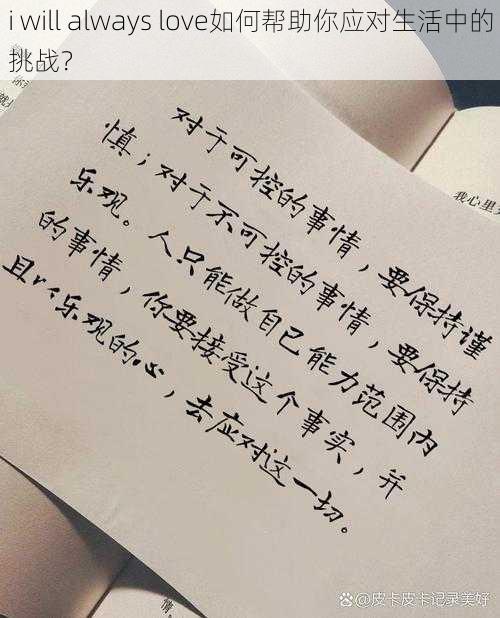 i will always love如何帮助你应对生活中的
挑战？
我心里
对于可控的事情，要保持谨
慎；对于不可控的事情，要保持
乐观。人只能做自己能力范围内
的事情，你要接受这个事实，并
且以乐观的心，去应对这一切。
情。
@皮卡皮卡记录美好